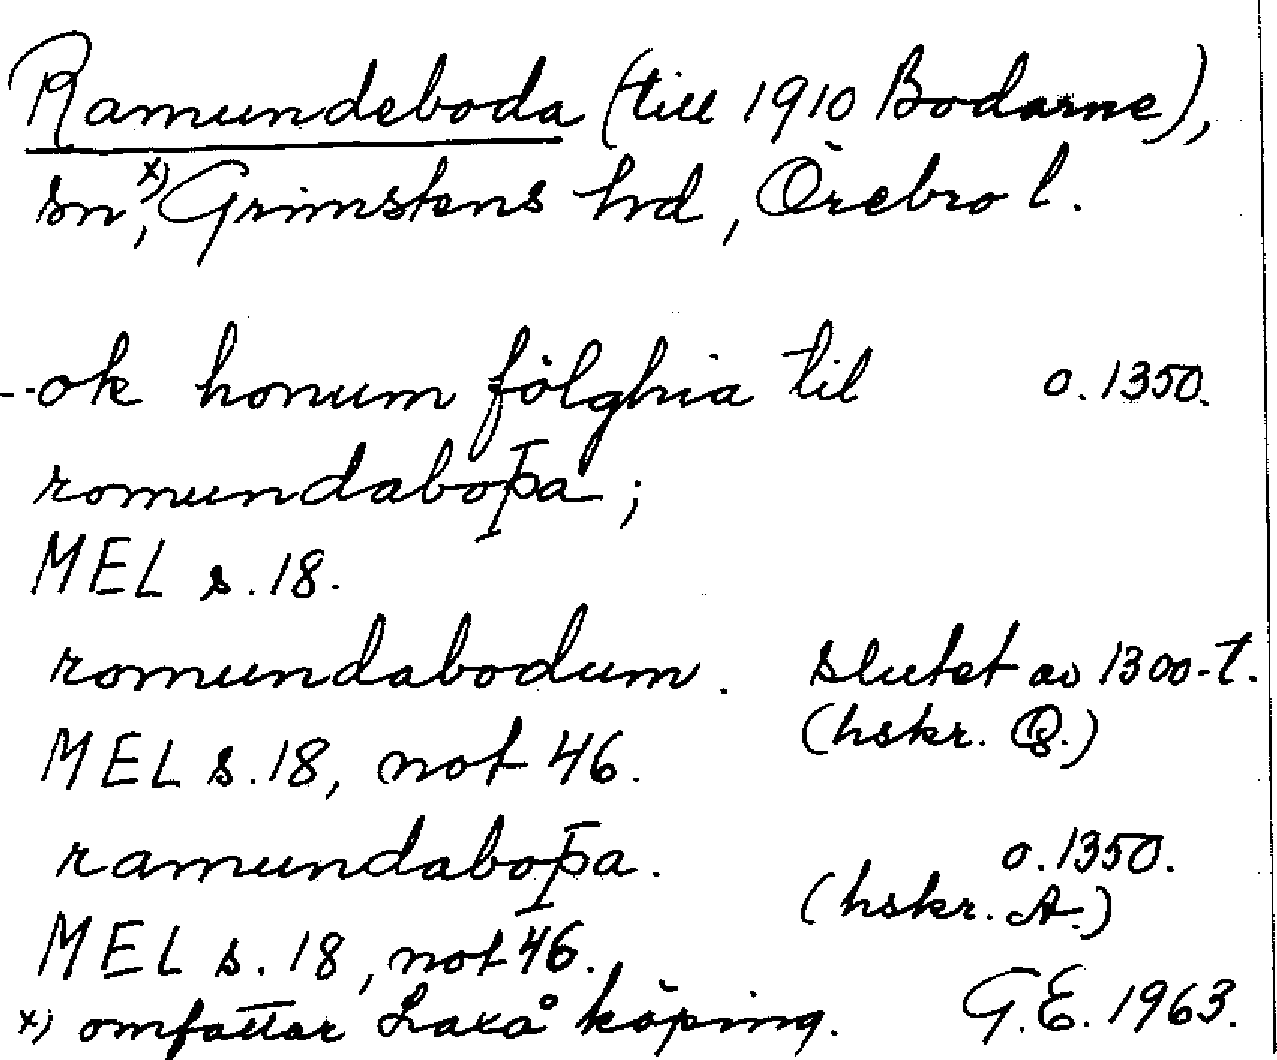 Ramundeboda (till 1910 Bodarne),
sn x), Grimstens hd, Örebro l.
--ok honum fölghia til o. 1350.
romundaboþa;
MEL s. 18.
romundabodum. slutet av 1300-t.
(hskr. Q.)
MEL s. 18, not 46.
ramundaboþa. o. 1350.
(hskr. A.)
MEL s. 18, not 46.
x) omfattar Laxå köping. G.E. 1963.